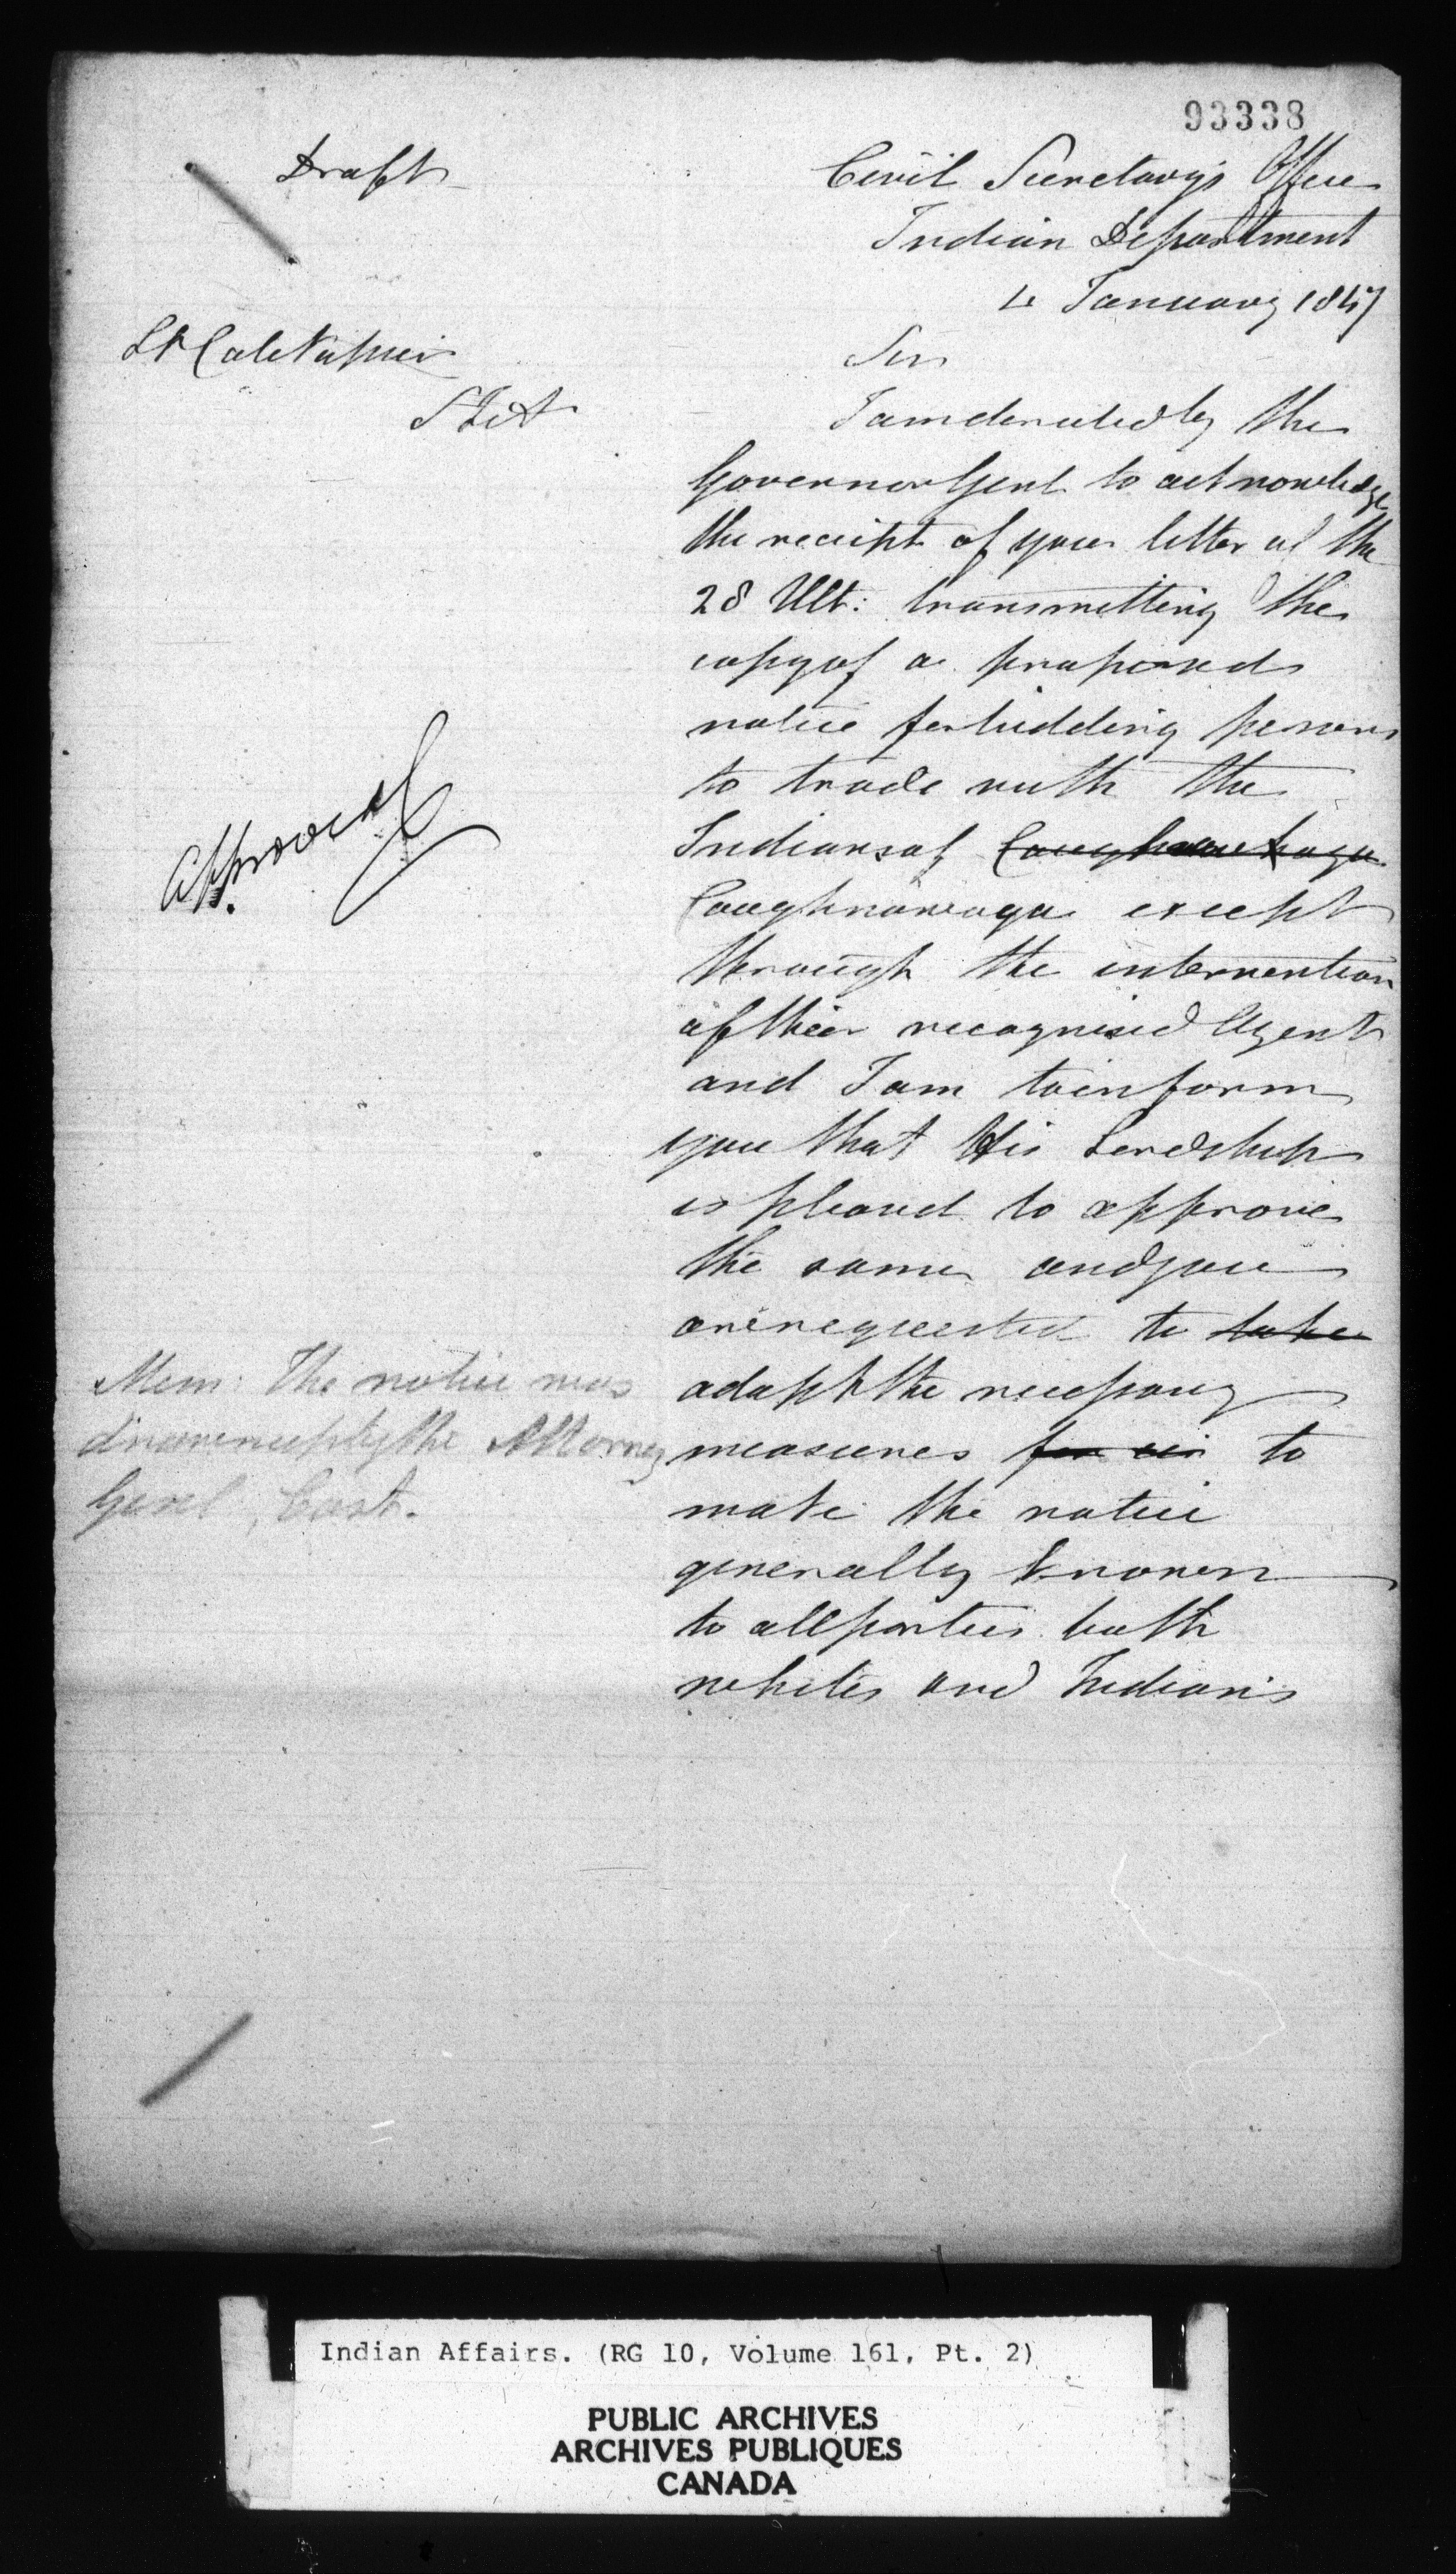 93338
Draft
Civil Secretary's Office
Indian Department
4 January 1847
Lt Col Napier
Sir
I am directed by the
Governor Genl to acknowledge
the receipt of your letter of the
28 Ult: transmitting the
copy of a proposed
notice forbidding persons
to trade with the
Indians of
Caughnawaga except
through the intervention
of their recognised Agent
and I am to inform
you that His Lordship
is pleased to approve
the same and you
are requested to take
adopt the necessary
measures for to
make the notice
generally known
to all parties both
whites and Indians
Approved
Mem: The notice was
drawn up by the Attorney
Genl East.
Indian Affairs. (RG 10, Volume 161, Pt. 2)
PUBLIC ARCHIVES
ARCHIVES PUBLIQUES
CANADA